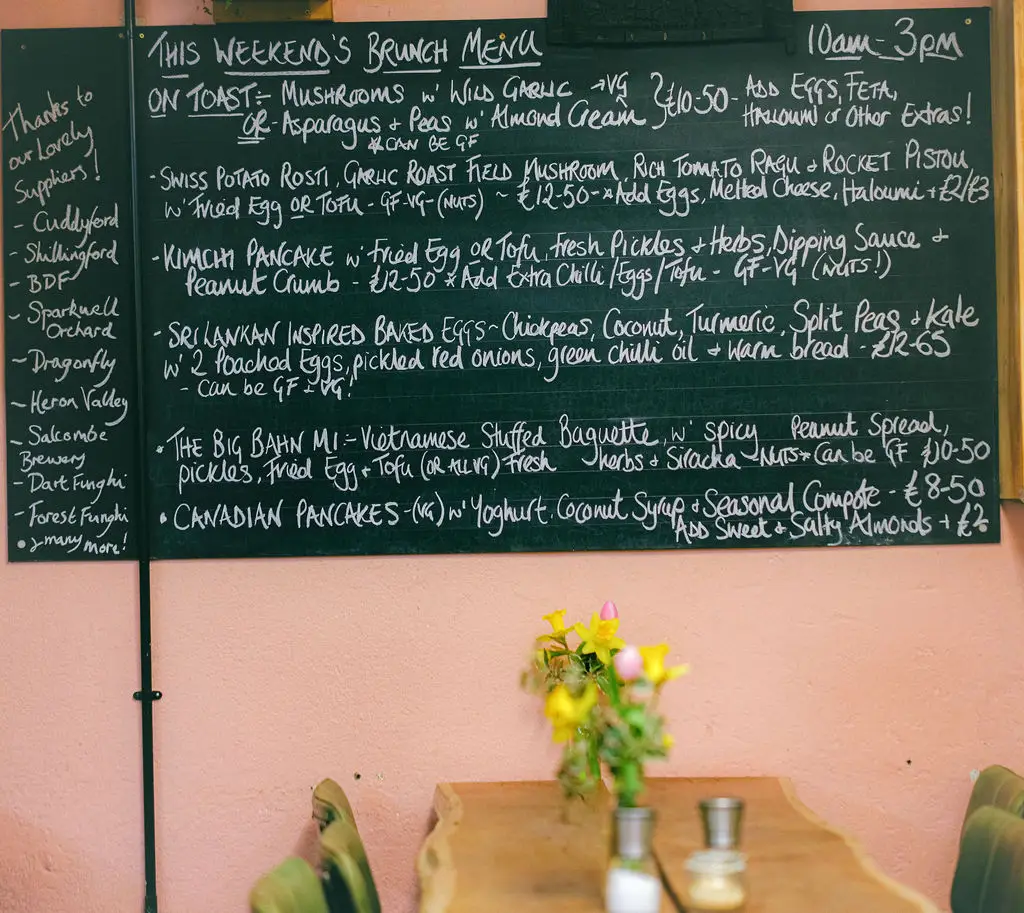 THIS WEEKEND'S BRUNCH MENU
10am - 3pm
ON TOAST:- MUSHROOMS w' WILD GARLIC → VG
OR - Asparagus + Peas w' Almond Cream } £10-50 - ADD EGGS, FETA,
HALLOUMI or Other Extras!
* CAN BE GF
- SWISS POTATO ROSTI, GARLIC ROAST FIELD MUSHROOM, RICH TOMATO RAGU + ROCKET PISTOU
w' Fried Egg OR TOFU - GF-VG-(NUTS) ~ £12-50-*Add Eggs, Melted Cheese, Haloumi + £2/£3
- KIMCHI PANCAKE w' Fried Egg OR Tofu, Fresh Pickles + Herbs, Dipping Sauce +
Peanut Crumb - £12-50 * Add Extra Chilli/Eggs/Tofu - GF-VG (NUTS!)
- SRI LANKAN INSPIRED BAKED EGGS ~ Chickpeas, Coconut, Turmeric, Split Peas + Kale
w' 2 Poached Eggs, pickled red onions, green chilli oil + warm bread - £12-65
- Can be GF + VG!
• THE BIG BAHN MI:- Vietnamese Stuffed Baguette, w' spicy Peanut Spread,
pickles, Fried Egg + Tofu (OR ALL VG) Fresh herbs + Siracha NUTS * Can be GF £10-50
• CANADIAN PANCAKES -(VG) w' Yoghurt, Coconut Syrup + Seasonal Compote - £8-50
ADD Sweet + Salty Almonds + £2
Thanks to
our Lovely
Suppliers!
- Cuddyford
- Shillingford
- BDF
- Sparkwell
Orchard
- Dragonfly
- Heron Valley
- Salcombe
Brewery
- Dart Funghi
- Forest Funghi
• + many more!